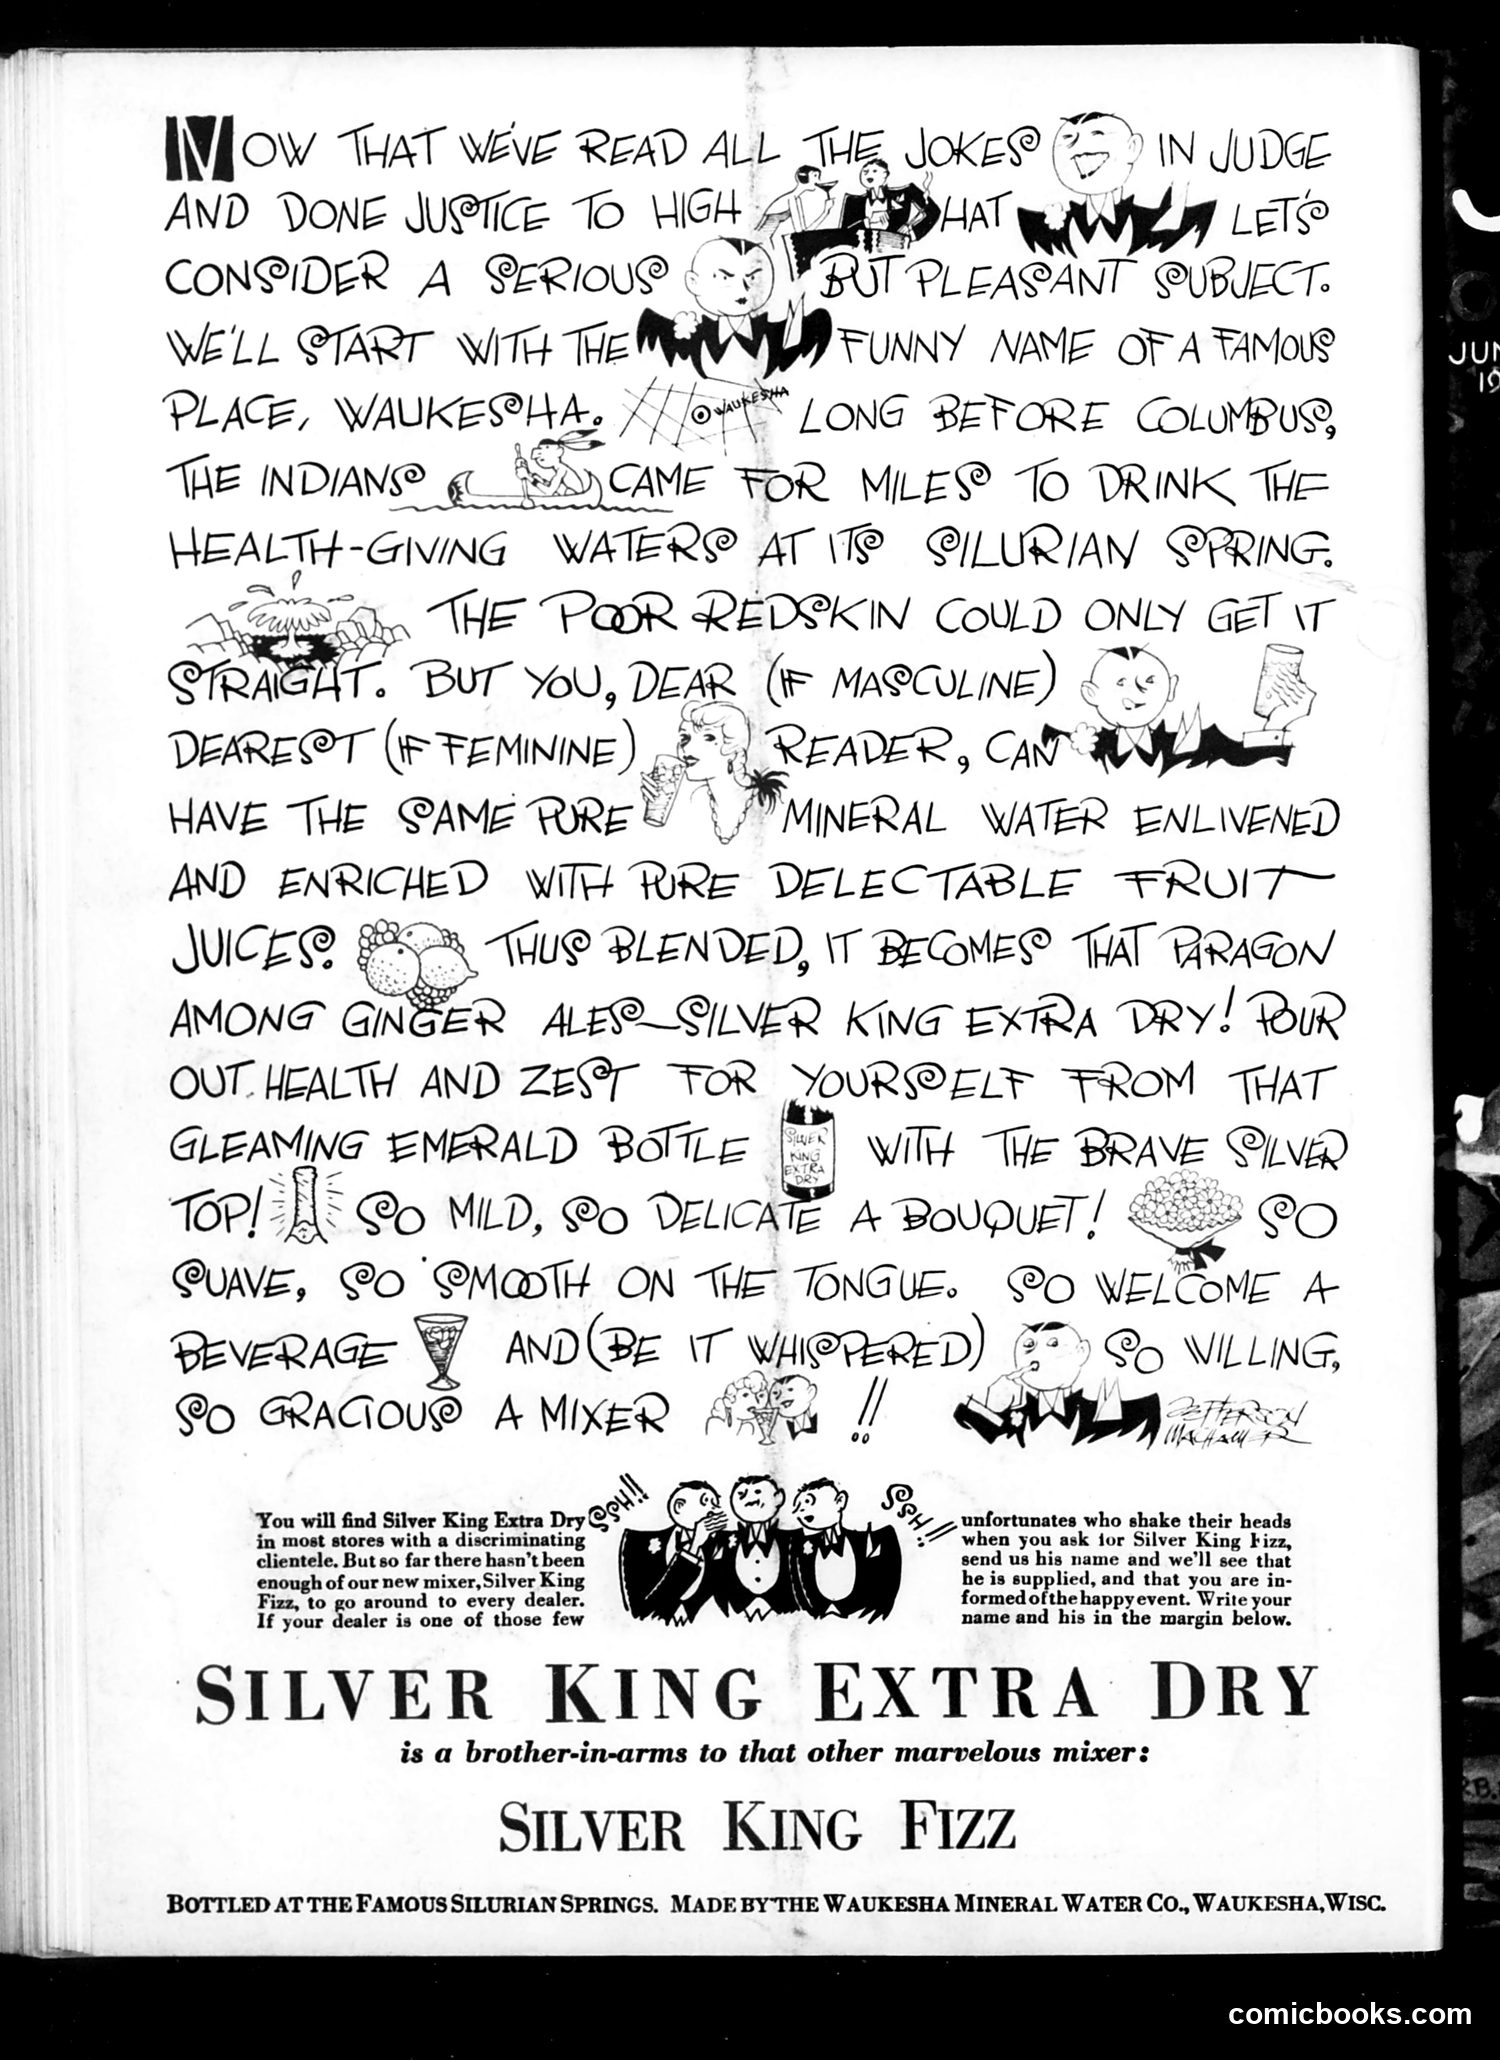 NOW THAT WE'VE READ ALL THE JOKES IN JUDGE
AND DONE JUSTICE TO HIGH HAT LET'S
CONSIDER A SERIOUS BUT PLEASANT SUBJECT.
WE'LL START WITH THE FUNNY NAME OF A FAMOUS
PLACE, WAUKESHA. WAUKESHA LONG BEFORE COLUMBUS,
THE INDIANS CAME FOR MILES TO DRINK THE
HEALTH-GIVING WATERS AT ITS SILURIAN SPRING.
THE POOR REDSKIN COULD ONLY GET IT
STRAIGHT. BUT YOU, DEAR (IF MASCULINE)
DEAREST (IF FEMININE) READER, CAN
HAVE THE SAME PURE MINERAL WATER ENLIVENED
AND ENRICHED WITH PURE DELECTABLE FRUIT
JUICES. THUS BLENDED, IT BECOMES THAT PARAGON
AMONG GINGER ALES—SILVER KING EXTRA DRY! POUR
OUT HEALTH AND ZEST FOR YOURSELF FROM THAT
GLEAMING EMERALD BOTTLE WITH THE BRAVE SILVER
SILVER
KING
EXTRA
DRY
TOP! SO MILD, SO DELICATE A BOUQUET! SO
SUAVE, SO SMOOTH ON THE TONGUE. SO WELCOME A
BEVERAGE AND (BE IT WHISPERED) SO WILLING,
SO GRACIOUS A MIXER !!
JEFFERSON
MACHAMER
You will find Silver King Extra Dry
in most stores with a discriminating
clientele. But so far there hasn't been
enough of our new mixer, Silver King
Fizz, to go around to every dealer.
If your dealer is one of those few
SSH!!
SSH!!
unfortunates who shake their heads
when you ask for Silver King Fizz,
send us his name and we'll see that
he is supplied, and that you are in-
formed of the happy event. Write your
name and his in the margin below.
SILVER KING EXTRA DRY
is a brother-in-arms to that other marvelous mixer:
SILVER KING FIZZ
BOTTLED AT THE FAMOUS SILURIAN SPRINGS. MADE BY THE WAUKESHA MINERAL WATER CO., WAUKESHA, WISC.
comicbooks.com